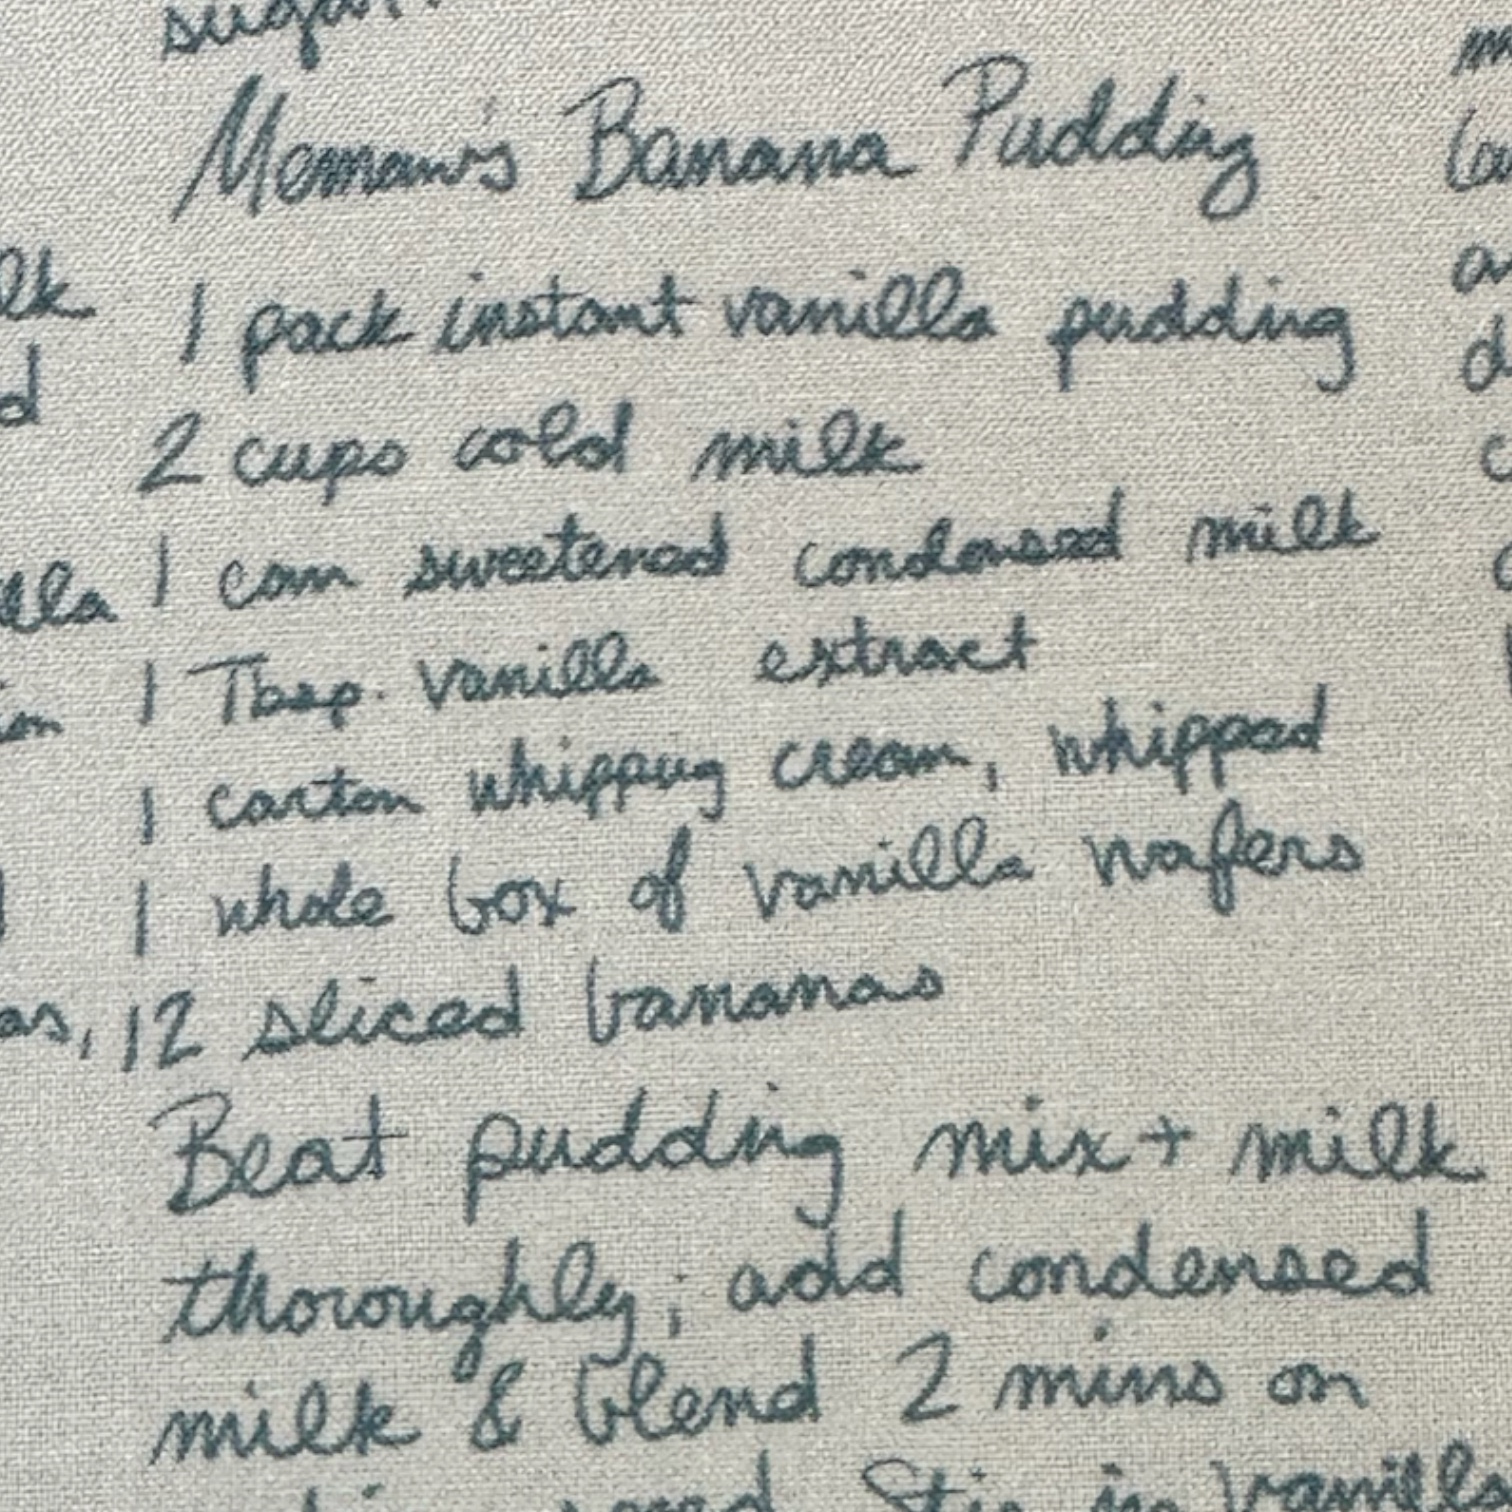 sugar.
Memaw's Banana Pudding
1 pack instant vanilla pudding
2 cups cold milk
1 can sweetened condensed milk
1 Tbsp. vanilla extract
1 carton whipping cream, whipped
1 whole box of vanilla wafers
12 sliced bananas
Beat pudding mix + milk
thoroughly; add condensed
milk & blend 2 mins on
Stir in vanilla